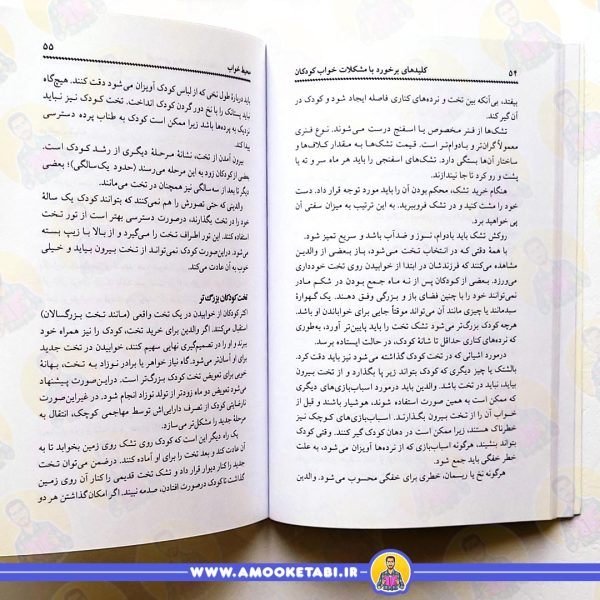 ۵۴
کلیدهای برخورد با مشکلات خواب کودکان
بیفتد، بی‌آنکه بین تخت و نرده‌های کناری فاصله ایجاد شود و کودک در
آن گیر کند.
تشک‌ها از فنر مخصوص یا اسفنج درست می‌شوند. نوع فنری
معمولاً گران‌تر و بادوام‌تر است. قیمت تشک‌ها به مقدار کلاف‌ها و
ساختار آن‌ها بستگی دارد. تشک‌های اسفنجی را باید هر ماه سر و ته یا
پشت و رو کرد تا جا نیندازند.
هنگام خرید تشک، محکم بودن آن را باید مورد توجه قرار داد. دست
خود را مشت کنید و در تشک فروببرید. به این ترتیب به میزان سفتی آن
پی خواهید برد.
روکش تشک باید بادوام، نسوز و ضدآب باشد و سریع تمیز شود.
با همهٔ دقتی که در انتخاب تخت می‌شود، باز بعضی از والدین
مشاهده می‌کنند که فرزندشان در ابتدا از خوابیدن روی تخت خودداری
می‌ورزد. بعضی از کودکان پس از نه ماه جمع بودن در شکم مادر
نمی‌توانند خود را با چنین فضای باز و بزرگی وفق دهند. یک گهوارهٔ
سبدمانند یا چیزی مانند آن می‌تواند موقتاً جایی برای خواباندن او باشد.
هرچه کودک بزرگ‌تر می‌شود تشک تخت را باید پایین‌تر آورد، به‌طوری
که نرده‌های کناری حداقل تا شانهٔ کودک، در حالت ایستاده برسد.
درمورد اشیائی که در تخت کودک گذاشته می‌شود نیز باید دقت کرد.
بالشت یا چیز دیگری که کودک بتواند زیر پا بگذارد و از تخت بیرون
بیاید، نباید در تخت باشد. والدین باید درمورد اسباب‌بازی‌های دیگری
که ممکن است به همین صورت استفاده شوند، هوشیار باشند و قبل از
خواب آن را از تخت بیرون بگذارند. اسباب‌بازی‌های کوچک نیز
خطرناک هستند، زیرا ممکن است در دهان کودک گیر کنند. وقتی کودک
بتواند بنشیند، هرگونه اسباب‌بازی که از نرده‌ها آویزان می‌شود، به علت
خطر خفگی باید جمع شود.
هرگونه نخ یا ریسمان، خطری برای خفگی محسوب می‌شود. والدین
محیط خواب
۵۵
باید دربارهٔ طول نخی که از لباس کودک آویزان می‌شود دقت کنند. هیچ‌گاه
نباید پستانک را با نخ دور گردن کودک انداخت. تخت کودک نیز نباید
نزدیک به پرده‌ها باشد زیرا ممکن است کودک به طناب پرده دسترسی
پیدا کند.
بیرون آمدن از تخت، نشانهٔ مرحلهٔ دیگری از رشد کودک است.
بعضی از کودکان زود به این مرحله می‌رسند (حدود یک‌سالگی)؛ بعضی
دیگر تا بعد از سه‌سالگی نیز همچنان در تخت می‌مانند.
والدینی که حتی تصورش را هم نمی‌کنند که بتوانند کودک یک سالهٔ
خود را در تخت بگذارند، درصورت دسترسی بهتر است از تور تخت
استفاده کنند. این تور اطراف تخت را می‌گیرد و از بالا با زیپ بسته
می‌شود. دراین‌صورت کودک نمی‌تواند از تخت بیرون بیاید و خیلی
خوب به آن عادت می‌کند.
تخت کودکان بزرگ‌تر
اکثر کودکان از خوابیدن در یک تخت واقعی (مانند تخت بزرگسالان)
استقبال می‌کنند. اگر والدین برای خرید تخت، کودک را نیز همراه خود
برند و او را در تصمیم‌گیری نهایی سهیم کنند، خوابیدن در تخت جدید
برای او آسان‌تر می‌شود. گاه نیاز خواهر یا برادر نوزاد به تخت، بهانهٔ
خوبی برای تعویض تخت کودک بزرگ‌تر است. دراین‌صورت پیشنهاد
می‌شود تعویض دو ماه زودتر از تولد نوزاد انجام شود. در غیراین‌صورت
نارضایتی کودک از تصرف دارایی‌اش توسط مهاجمی کوچک، انتقال به
مرحلهٔ جدید را مشکل‌تر می‌سازد.
یک راه دیگر این است که کودک روی تشک روی زمین بخوابد تا به
آن عادت کند و بعد تخت را برای او آماده کنند. درضمن می‌توان تخت
جدید را کنار دیوار قرار داد و تشک تخت قدیمی را کنار آن روی زمین
گذاشت تا کودک درصورت افتادن، صدمه نبیند. اگر امکان گذاشتن هر دو
WWW.AMOOKETABI.IR